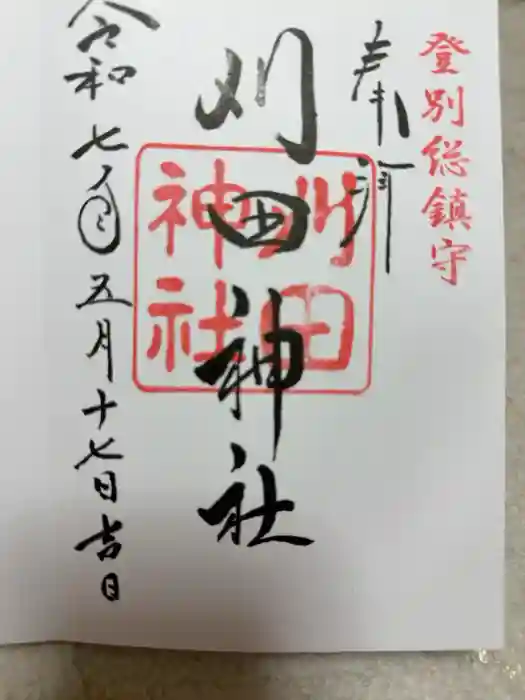 登別総鎮守
奉拝
刈田神社
刈田
神社
令和七年五月十七日吉日